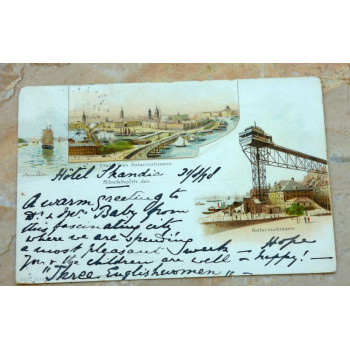 Utsigt från Katarinahissen
Stockholm, den
Hôtel Skandia
Katarinahissen.
A warm greeting to
Dr & Mrs Baby from
this fascinating city
where we are spending
a most pleasant week — Hope
you & the children are well & happy! —
"Three Englishwomen" —